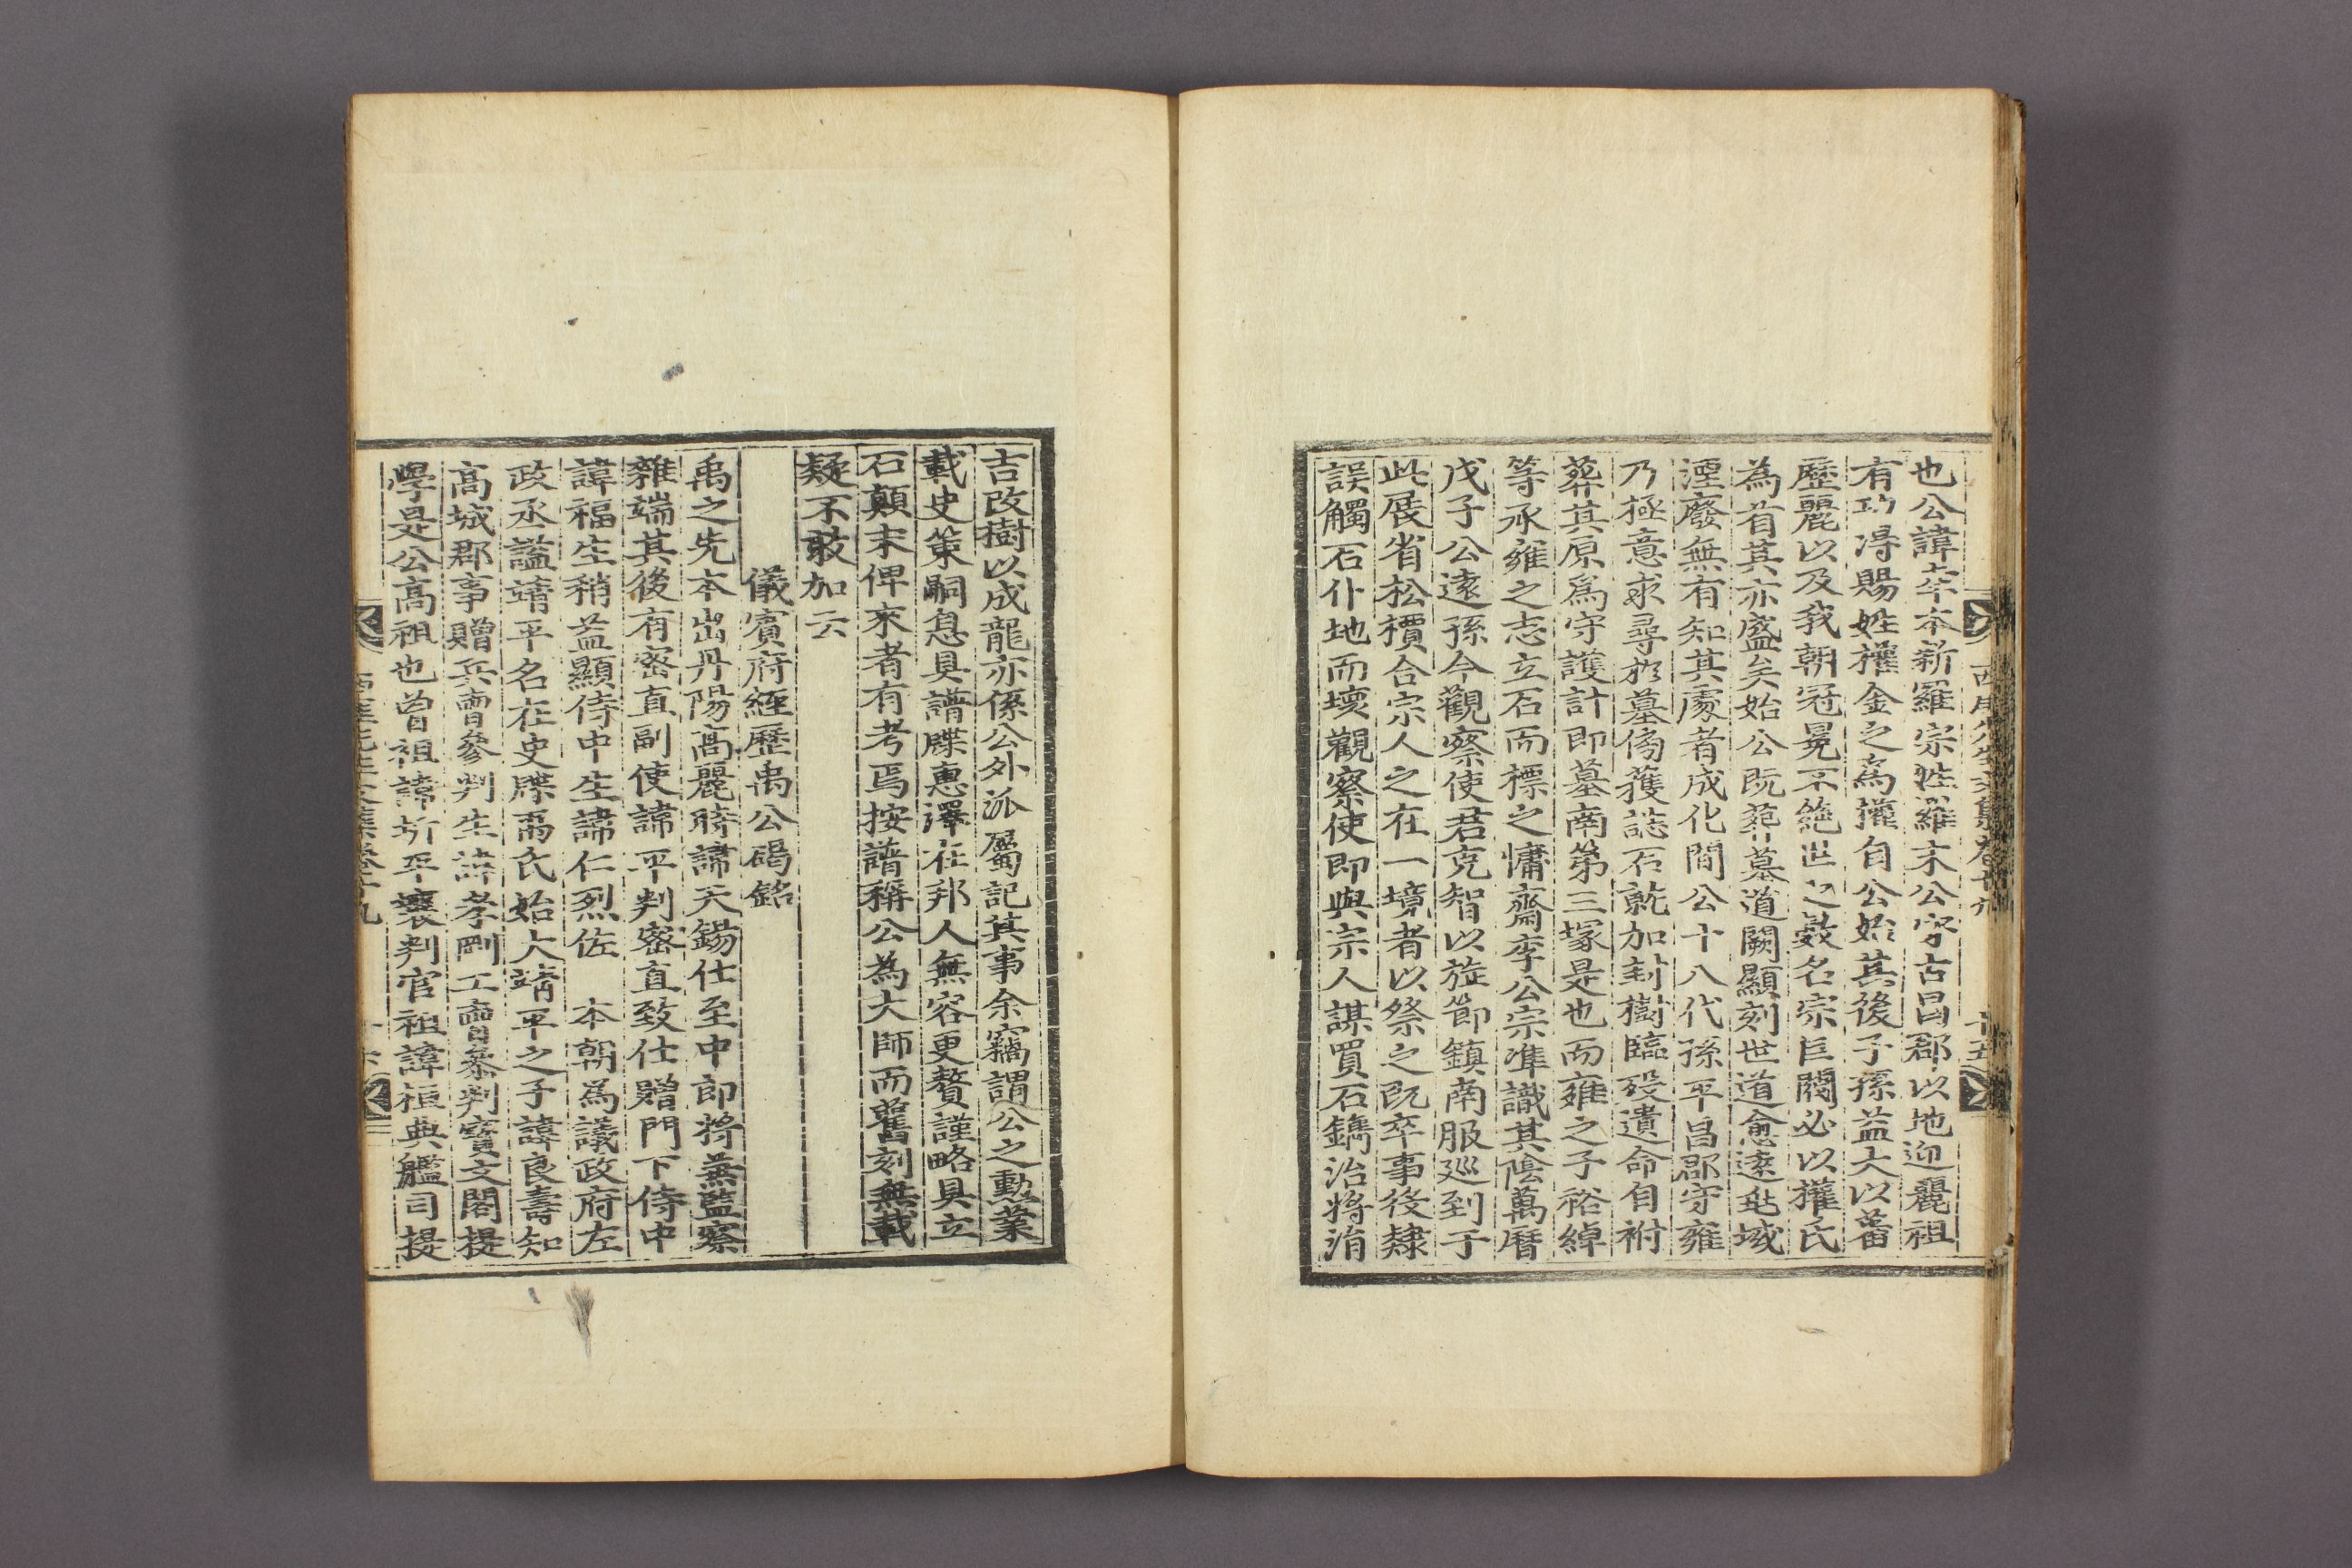 也公諱幸本新羅宗姓羅末公守古昌郡以地迎麗祖
有功得賜姓權金之爲權自公始其後子孫益大以蕃
歷麗以及我朝冠冕不絶世之數名宗巨閥必以權氏
為首其亦盛矣始公旣葬墓道闕顯刻世道愈遠兆域
湮廢無有知其處者成化間公十八代孫平昌郡守雍
乃極意求尋於墓傍獲誌石就加封樹臨歿遺命自祔
葬其原爲守護計即墓南第三塚是也而雍之子裕綽
等承雍之志立石而標之慵齋李公宗準識其陰萬曆
戊子公遠孫今觀察使君克智以旌節鎮南服廵到于
此展省松檟合宗人之在一境者以祭之旣卒事役隸
誤觸石仆地而壞觀察使即與宗人謀買石鐫治將涓
西厓先生文集卷十九
十五
吉改樹以成龍亦係公外派屬記其事余竊謂公之勳業
載史策嗣息具譜牒惠澤在邦人無容更贅謹略具立
石顛末俾來者有考焉按譜稱公為大師而舊刻無載
疑不敢加云
儀賓府經歷禹公碣銘
禹之先本出丹陽高麗時諱天錫仕至中郎將兼監察
雜端其後有密直副使諱平判密直致仕贈門下侍中
諱福生稍益顯侍中生諱仁烈佐　本朝爲議政府左
政丞謚靖平名在史牒禹氏始大靖平之子諱良壽知
高城郡事贈兵曹參判生諱孝剛工曹參判寶文閣提
學是公高祖也曾祖諱圻平壤判官祖諱桓典艦司提
西厓先生文集卷十九